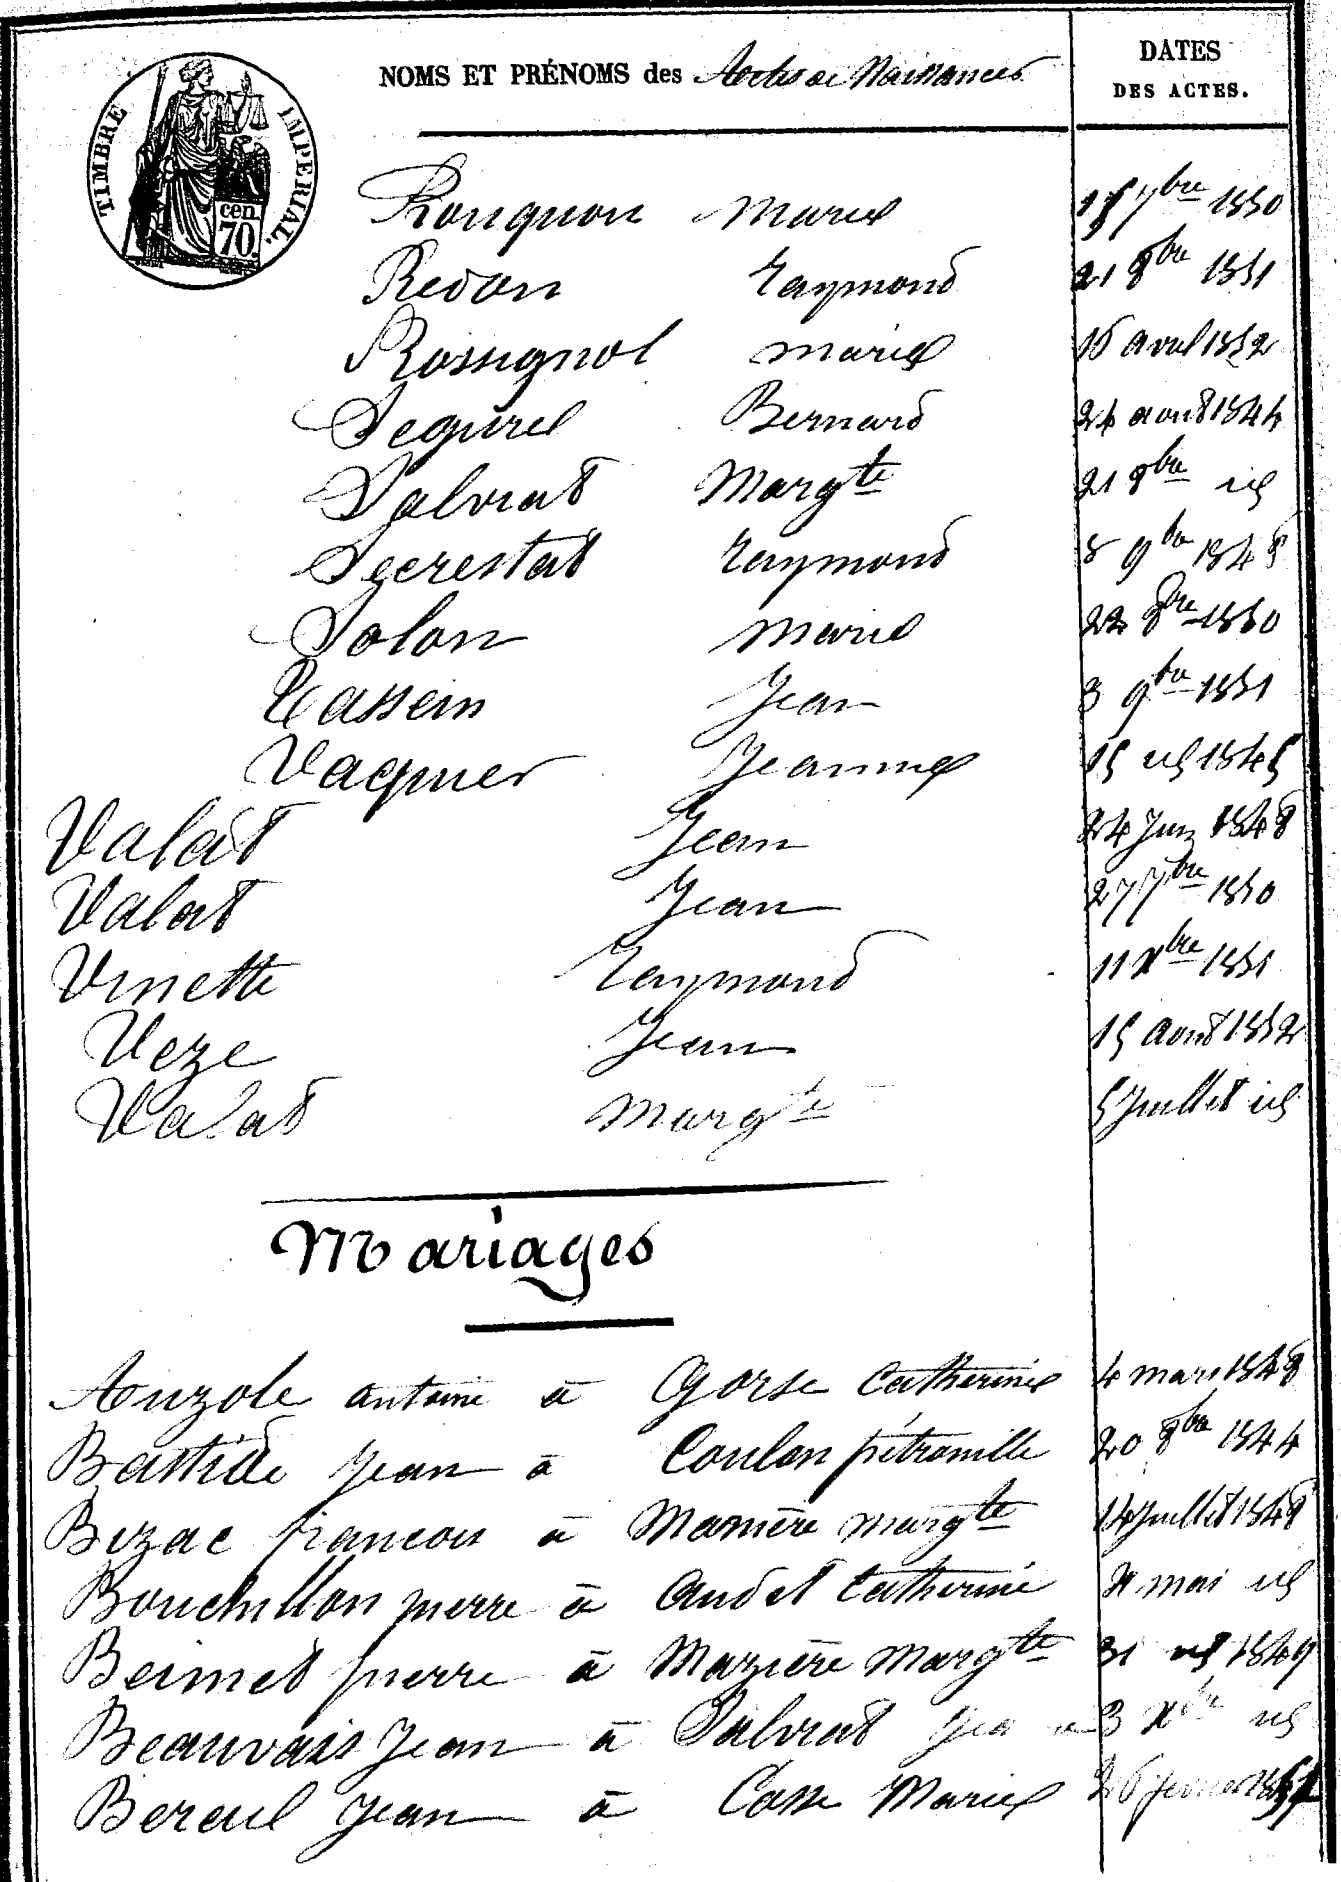 TIMBRE IMPERIAL. cen. 70.
NOMS ET PRÉNOMS des Actes de Naissances
DATES
DES ACTES.
Rouquou Marie 15 7bre 1850
Redon Raymond 21 8bre 1851
Rossignol marie 16 avril 1852
Segurel Bernard 24 août 1844
Salviat Margte 21 8bre id
Secrestat Raymond 8 9bre 1848
Solon marie 22 8bre 1850
Tassein Jean 3 9bre 1851
Vaquier Jeanne 15 id 1845
Valat Jean 24 Juin 1848
Valat Jean 27 7bre 1850
Vinette Raymond 11 Xbre 1851
Veze Jean 15 août 1852
Valat margte 5 Juillet id
Mariages
Auzole antoine à Gorse Catherine 4 mars 1848
Bastide Jean à Coulon pétronille 20 8bre 1844
Bizac francois à Manière margte 14 Juillet 1848
Bouchillon pierre à Audet Catherine mai id
Beimet pierre à Mazière Margte 31 id 1849
Beauvais Jean à Salviat 3 Xbre id
Bereul Jean à Casse Marie 26 fevrier